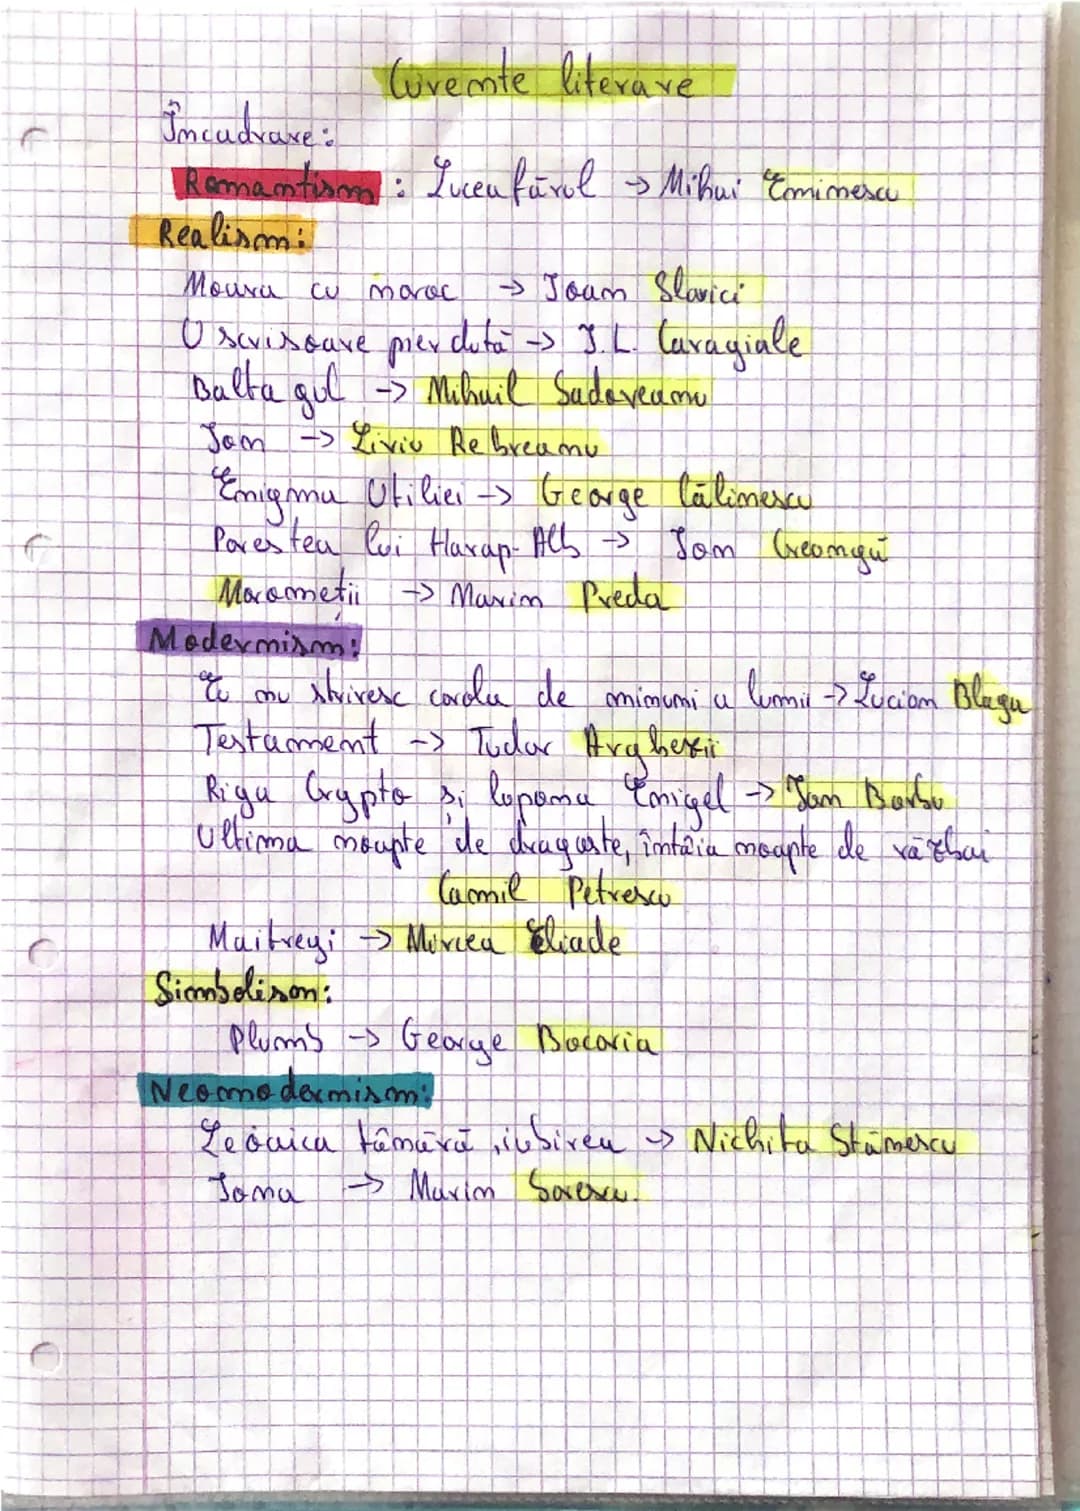 Curente literare
Încadrare:
Romantism : Luceafărul → Mihai Eminescu
Realism:
Moara cu noroc → Ioan Slavici
O scrisoare pierdută → I.L. Caragiale
Baltagul → Mihail Sadoveanu
Ion → Liviu Rebreanu
Enigma Otiliei → George Călinescu
Povestea lui Harap-Alb → Ion Creangă
Moromeții → Marin Preda
Modernism:
Eu nu strivesc corola de minuni a lumii → Lucian Blaga
Testament → Tudor Arghezii
Riga Crypto și lapona Enigel → Ion Barbu
Ultima noapte de dragoste, întâia noapte de război
Camil Petrescu
Maitreyi → Mircea Eliade
Simbolism:
Plumb → George Bacovia
Neomodernism:
Leoaica tânără, iubirea → Nichita Stănescu
Iona → Marin Sorescu.